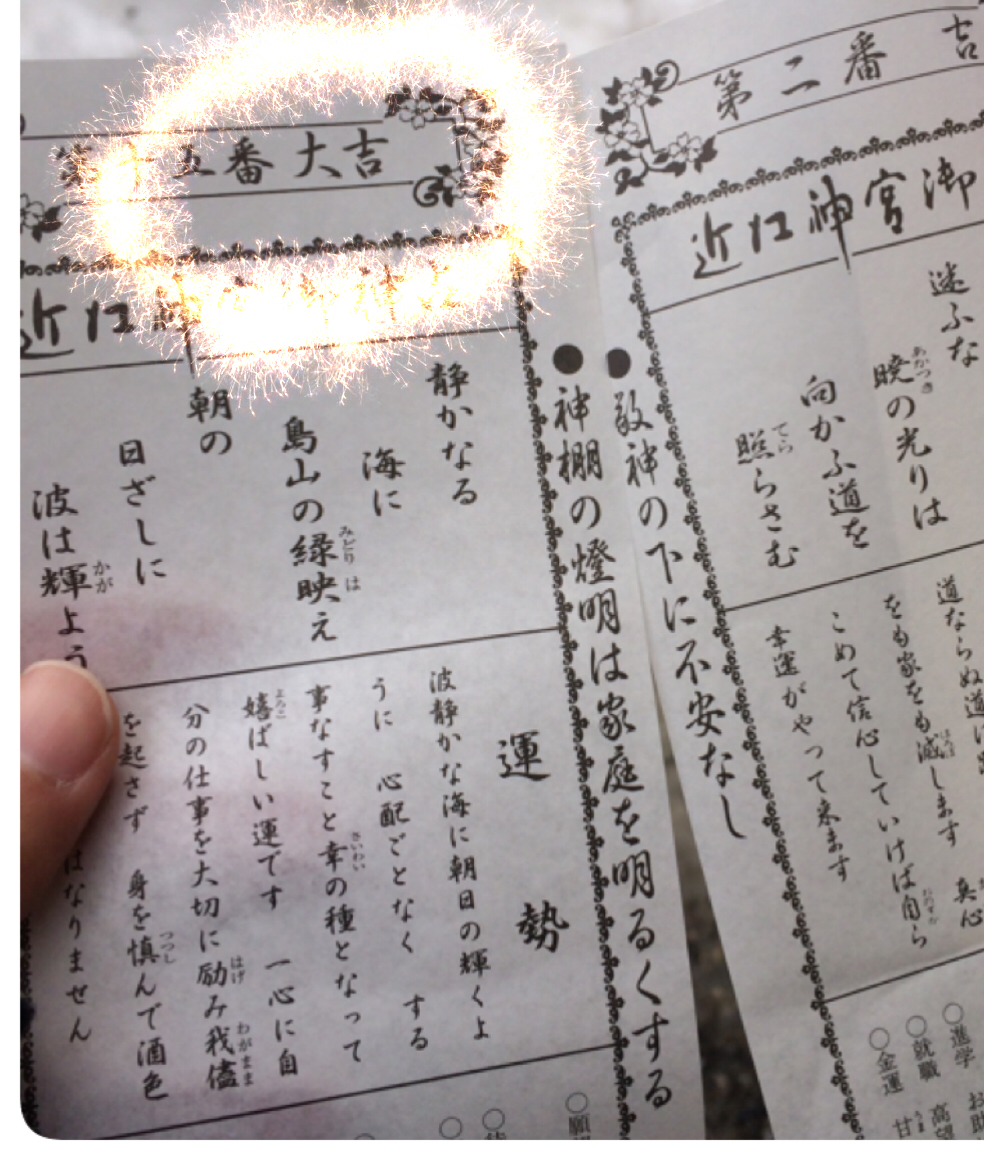 第十五番大吉
近江神宮御神
静かなる
海に
鳥山の緑映え
みどり は
朝の
日ざしに
波は輝よう
かが
運勢
波静かな海に朝日の輝くよ
うに 心配ごとなく する
事なすこと幸の種となって
さいわい
嬉ばしい運です 一心に自
よろこ
分の仕事を大切に励み我儘
はげ わがまま
を起さず 身を慎んで酒色
つつし
はなりません
●神棚の燈明は家庭を明るくする
○願
第二番 吉
近江神宮御
●敬神の下に不安なし
迷ふな
暁の光りは
あかつき
向かふ道を
照らさむ
てら
道ならぬ道
をも家をも滅します 真心
こめて信心していけば自ら
幸運がやって来ます
○進学
○就職 高望
○金運 甘